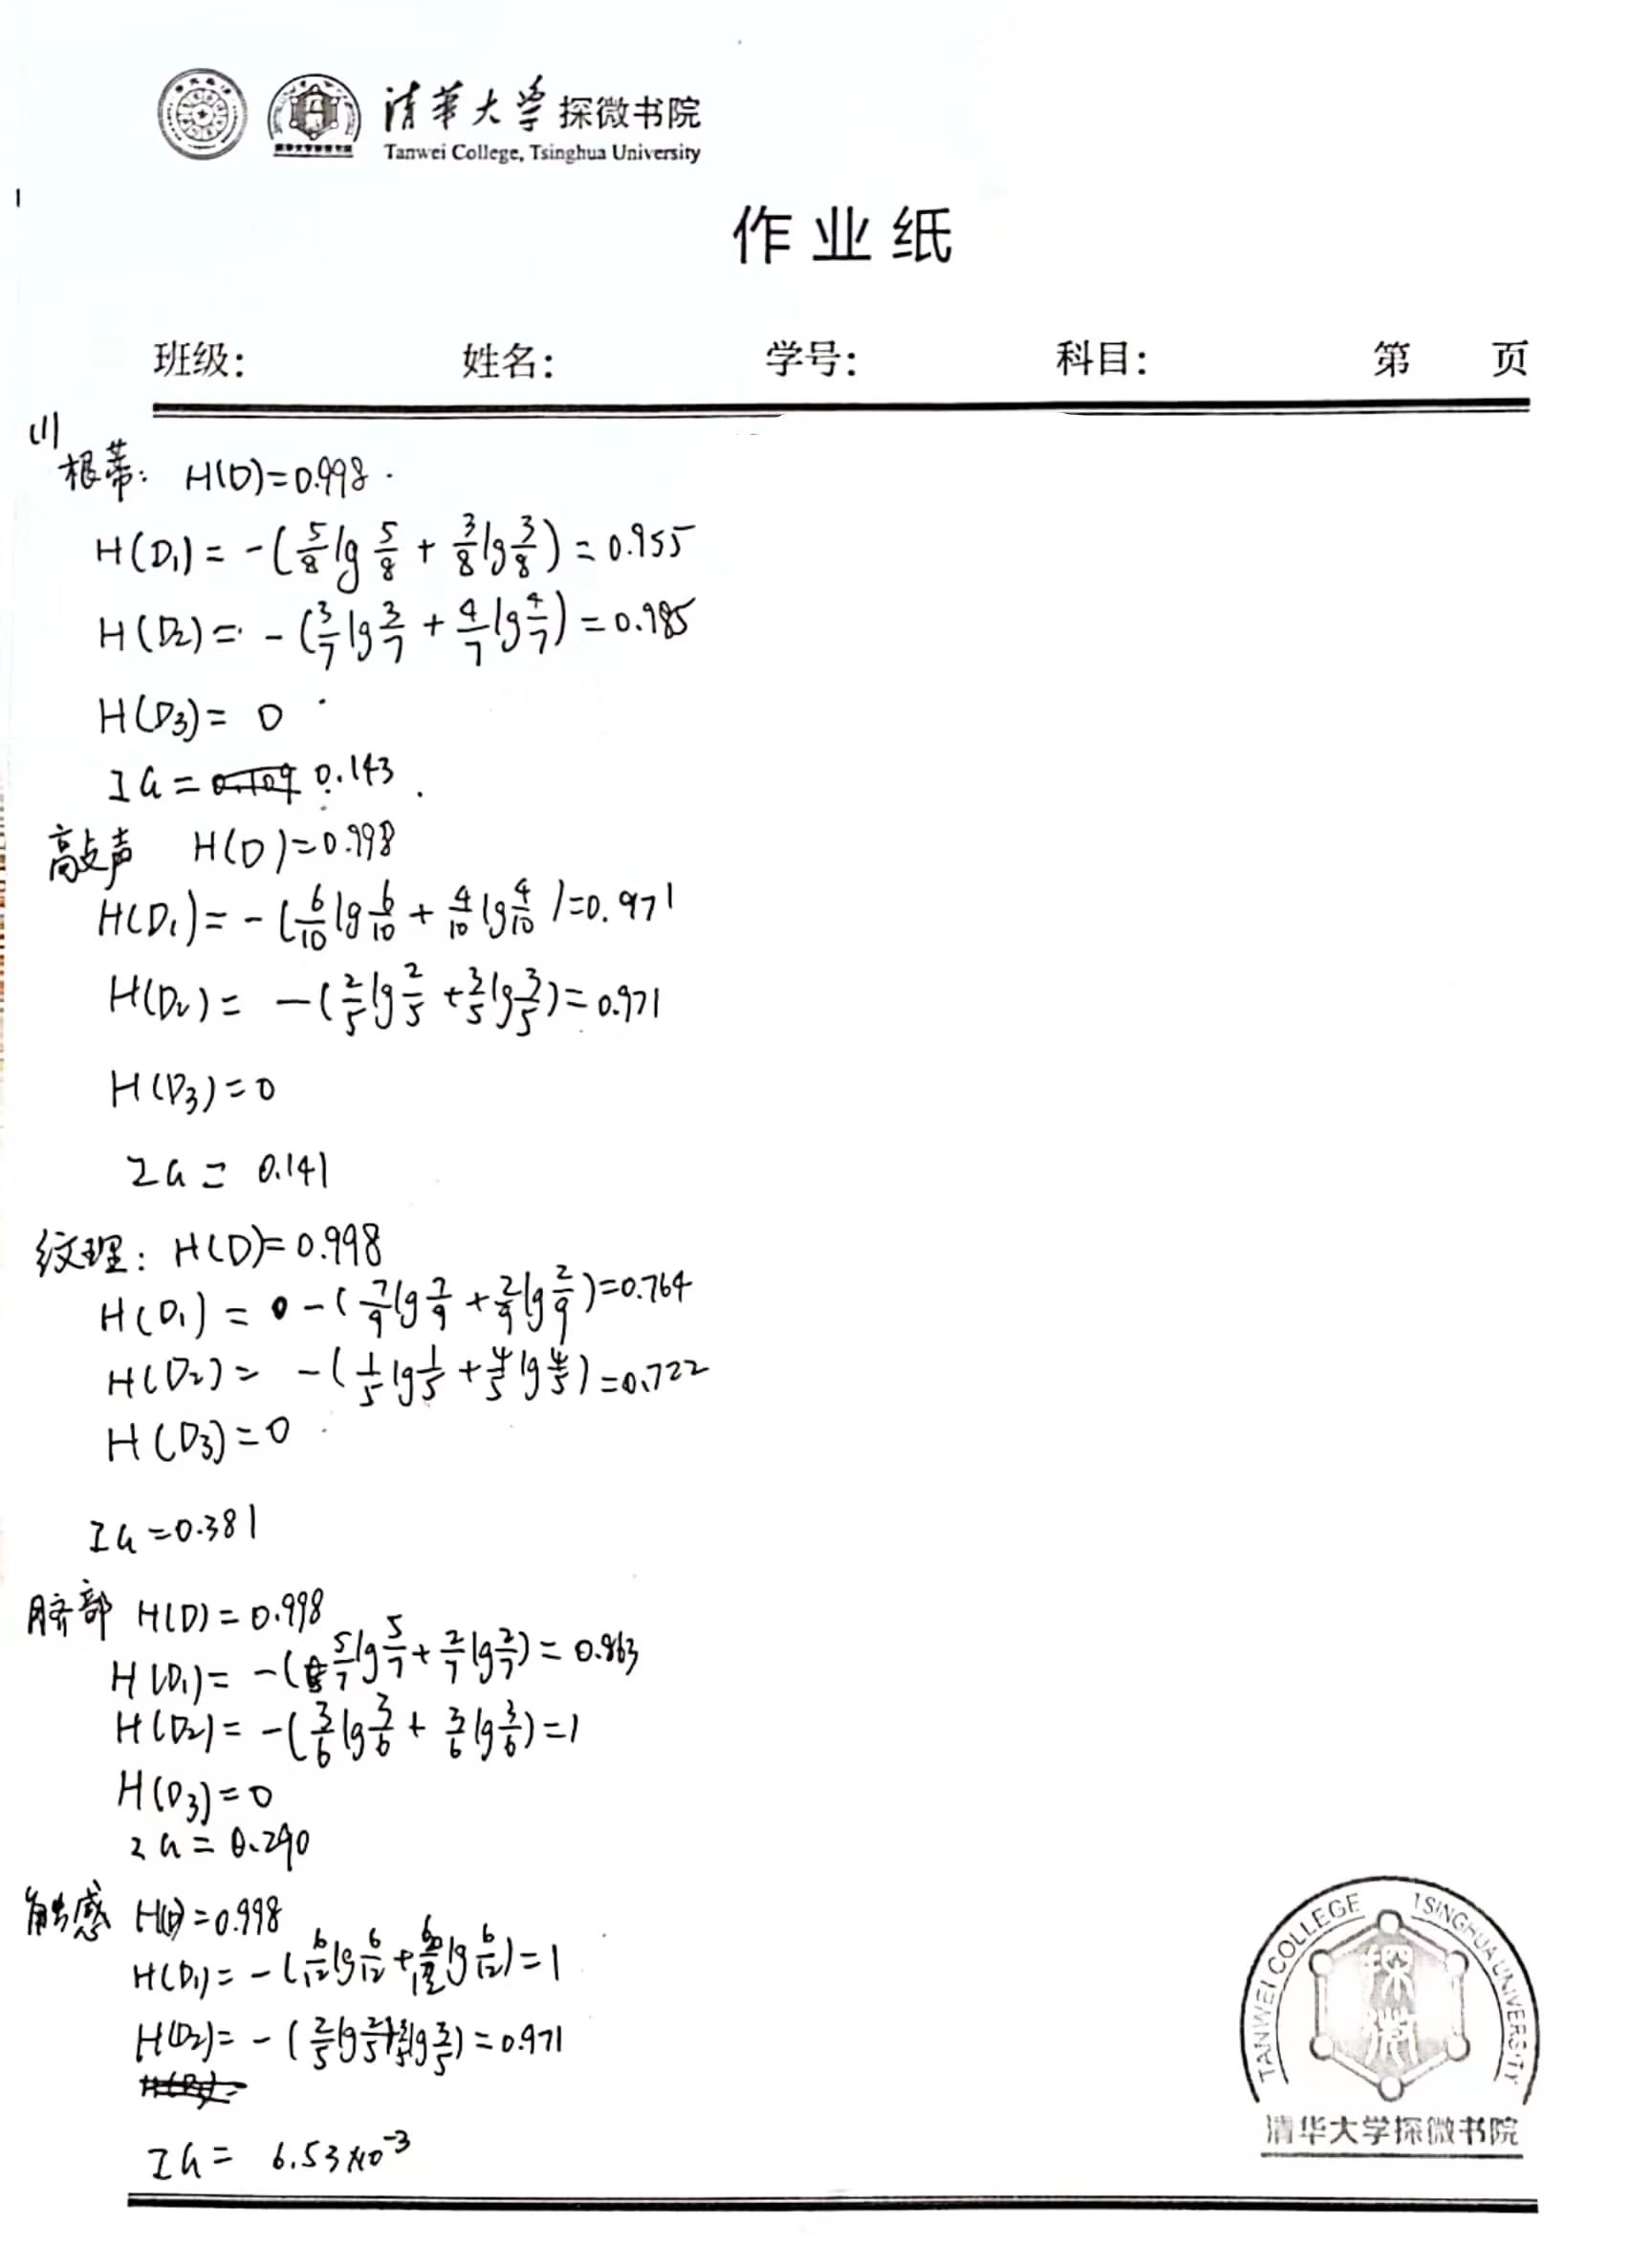 清华大学 探微书院
Tanwei College, Tsinghua University
作业纸
班级: 姓名: 学号: 科目: 第 页
(1)
根蒂: H(D)=0.998
H(D₁) = -(5/8 lg 5/8 + 3/8 lg 3/8) = 0.955
H(D₂) = -(3/7 lg 3/7 + 4/7 lg 4/7) = 0.985
H(D₃) = 0
IG = 0.143
敲声 H(D)=0.998
H(D₁) = -(6/10 lg 6/10 + 4/10 lg 4/10)=0.971
H(D₂) = -(2/5 lg 2/5 + 3/5 lg 3/5)=0.971
H(D₃)=0
IG = 0.141
纹理: H(D)=0.998
H(D₁) = -(7/9 lg 7/9 + 2/9 lg 2/9)=0.764
H(D₂) = -(1/5 lg 1/5 + 4/5 lg 4/5)=0.722
H(D₃)=0
IG=0.381
脐部 H(D)=0.998
H(D₁)= -(5/7 lg 5/7 + 2/7 lg 2/7) = 0.863
H(D₂)= -(3/6 lg 3/6 + 3/6 lg 3/6)=1
H(D₃)=0
IG = 0.290
触感 H(D)=0.998
H(D₁)= -(6/12 lg 6/12 + 6/12 lg 6/12)=1
H(D₂)= -(2/5 lg 2/5 + 3/5 lg 3/5) = 0.971
IG = 6.53×10⁻³
TANWEI COLLEGE TSINGHUA UNIVERSITY
探微
清华大学探微书院